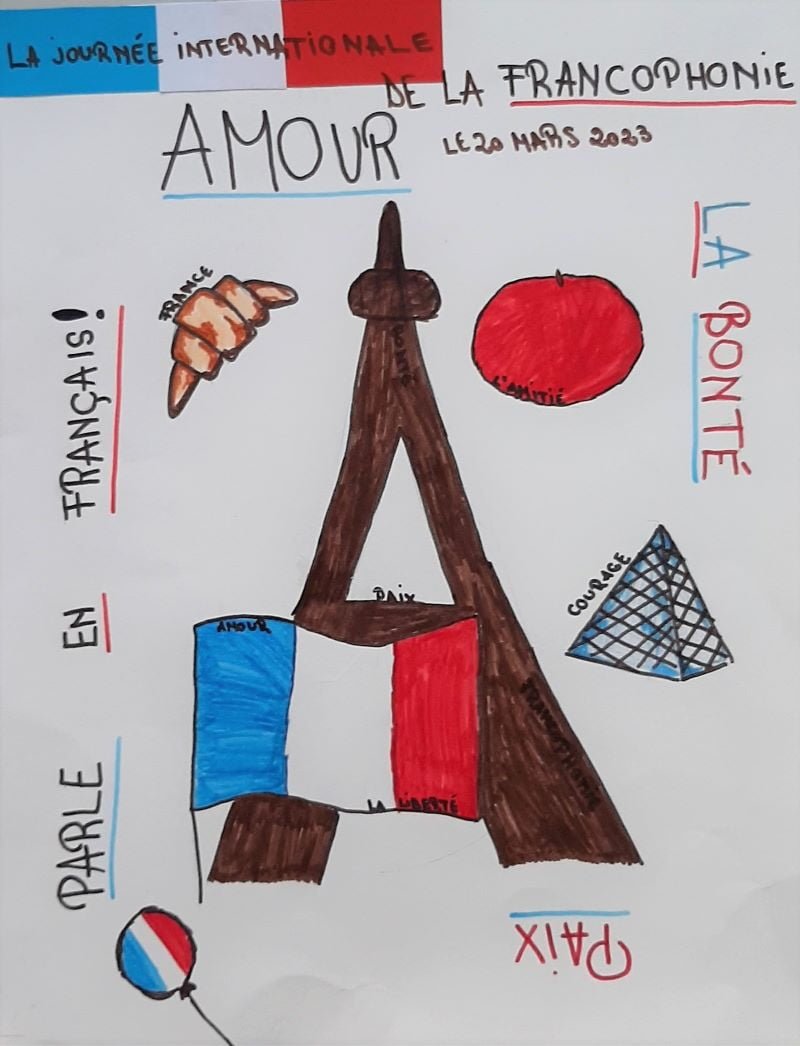 LA JOURNÉE INTERNATIONALE
DE LA FRANCOPHONIE
AMOUR
LE 20 MARS 2023
FRANCE
LA BONTÉ
BONTÉ
L'AMITIÉ
PARLE EN FRANÇAIS!
COURAGE
PAIX
AMOUR
FRANCOPHONIE
LA LIBERTÉ
PAIX